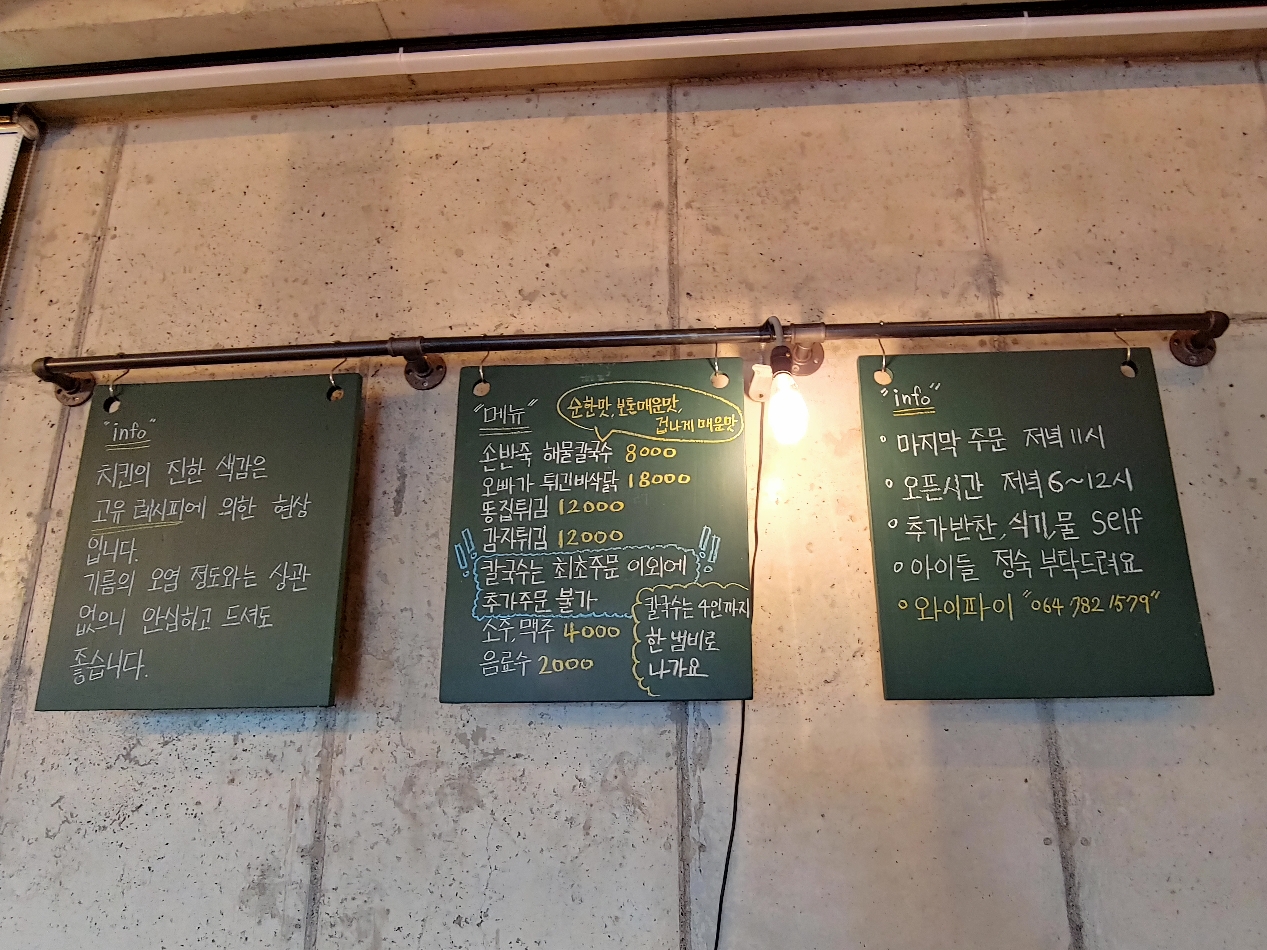 "info"
치킨의 진한 색감은
고유 레시피에 의한 현상
입니다.
기름의 오염 정도와는 상관
없으니 안심하고 드셔도
좋습니다.
"메뉴"
순한맛, 보통매운맛,
겁나게 매운맛
손반죽 해물칼국수 8000
오빠가 튀긴바삭닭 18000
똥집튀김 12000
감자튀김 12000
!! 칼국수는 최초주문 이외에 !!
추가주문 불가
소주, 맥주 4000
음료수 2000
칼국수는 4인까지
한 냄비로
나가요
"info"
마지막 주문 저녁 11시
오픈시간 저녁 6~12시
추가반찬, 식기, 물 self
아이들 정숙 부탁드려요
와이파이 "064 782 1579"